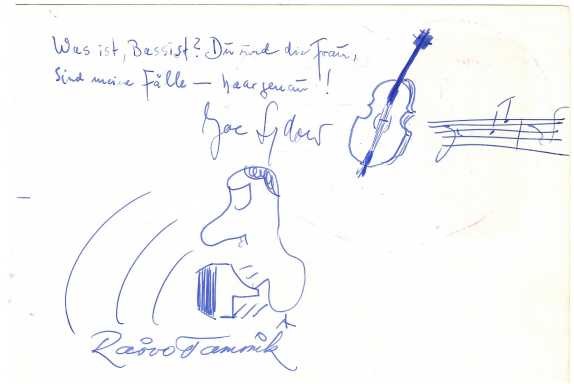 Was ist, Bassist? Du und die Frau,
Sind meine Fälle — haargenau!
Joe Sydow
Raivo Tammik